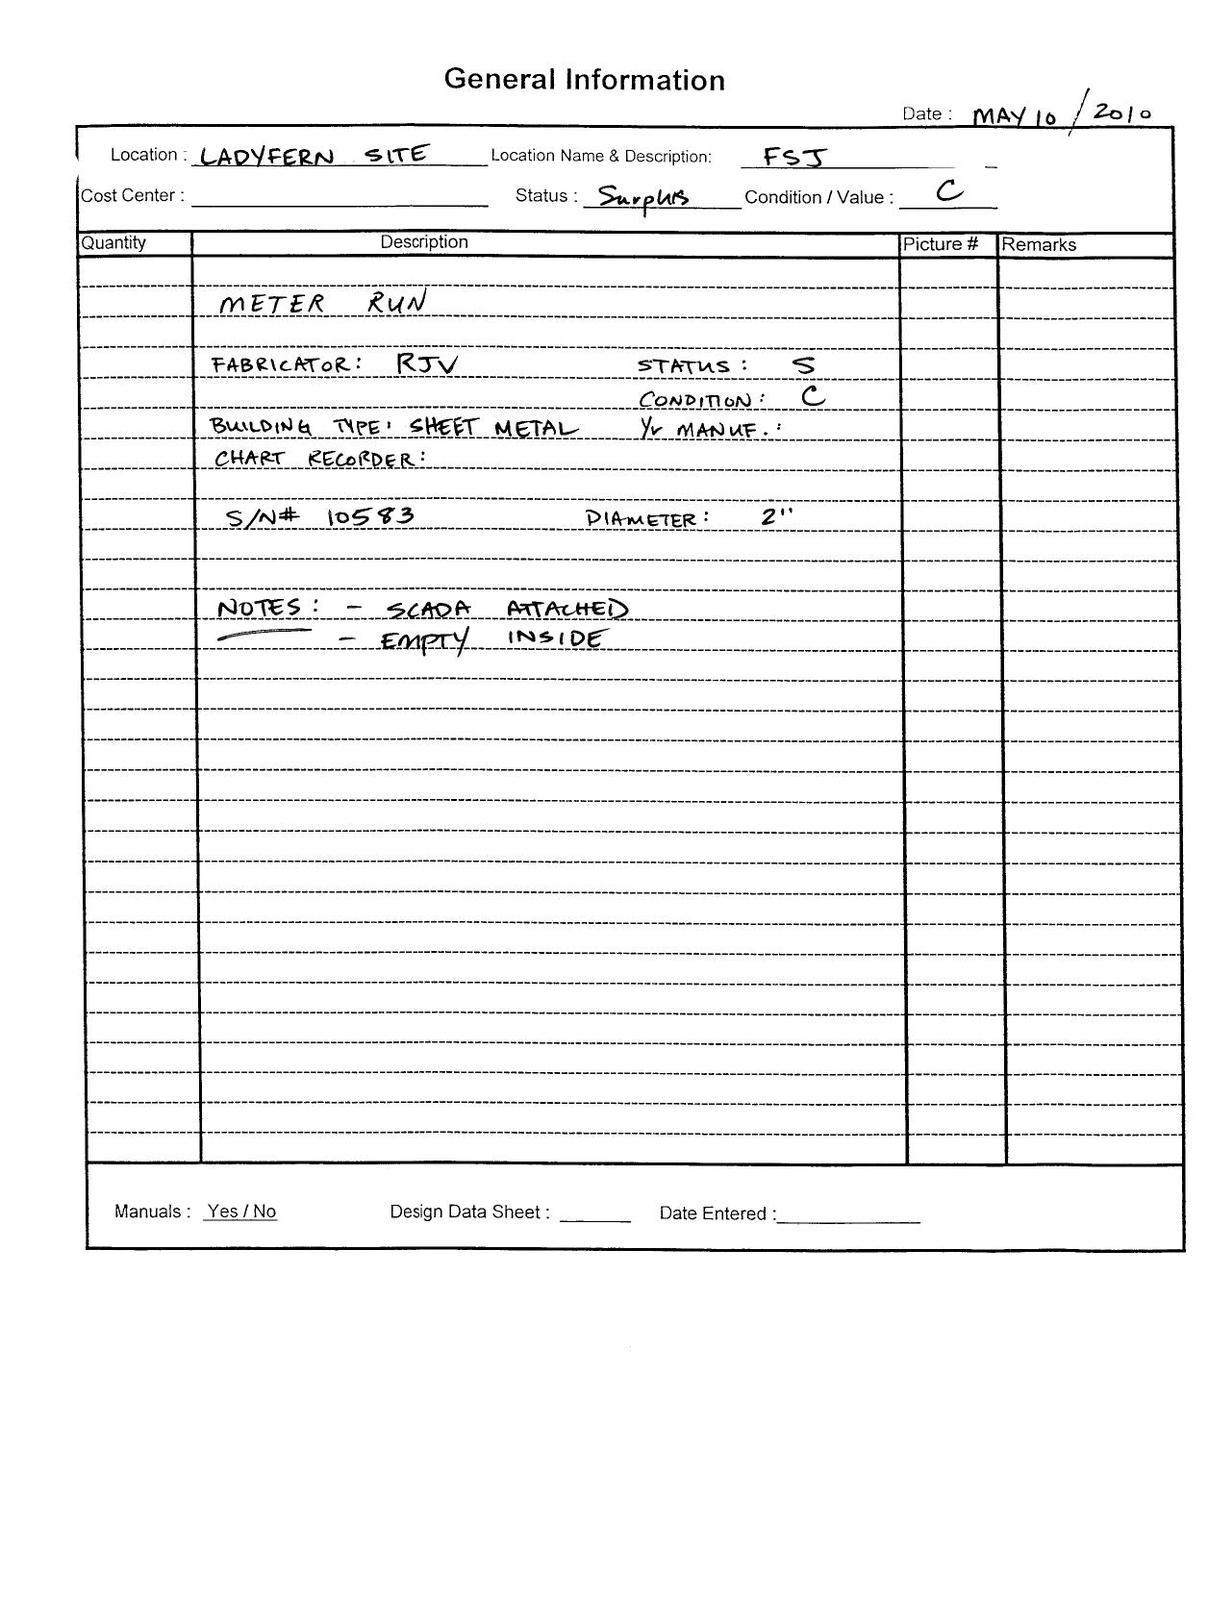 General Information
Date : MAY 10 / 2010
Location : LADYFERN SITE Location Name & Description: FSJ
Cost Center : Status : Surplus Condition / Value : C
Quantity Description Picture # Remarks
METER RUN
FABRICATOR: RJV STATUS: S
CONDITION: C
BUILDING TYPE: SHEET METAL Yr MANUF.:
CHART RECORDER:
S/N# 10583 DIAMETER: 2"
NOTES: - SCADA ATTACHED
- EMPTY INSIDE
Manuals : Yes / No Design Data Sheet : Date Entered :